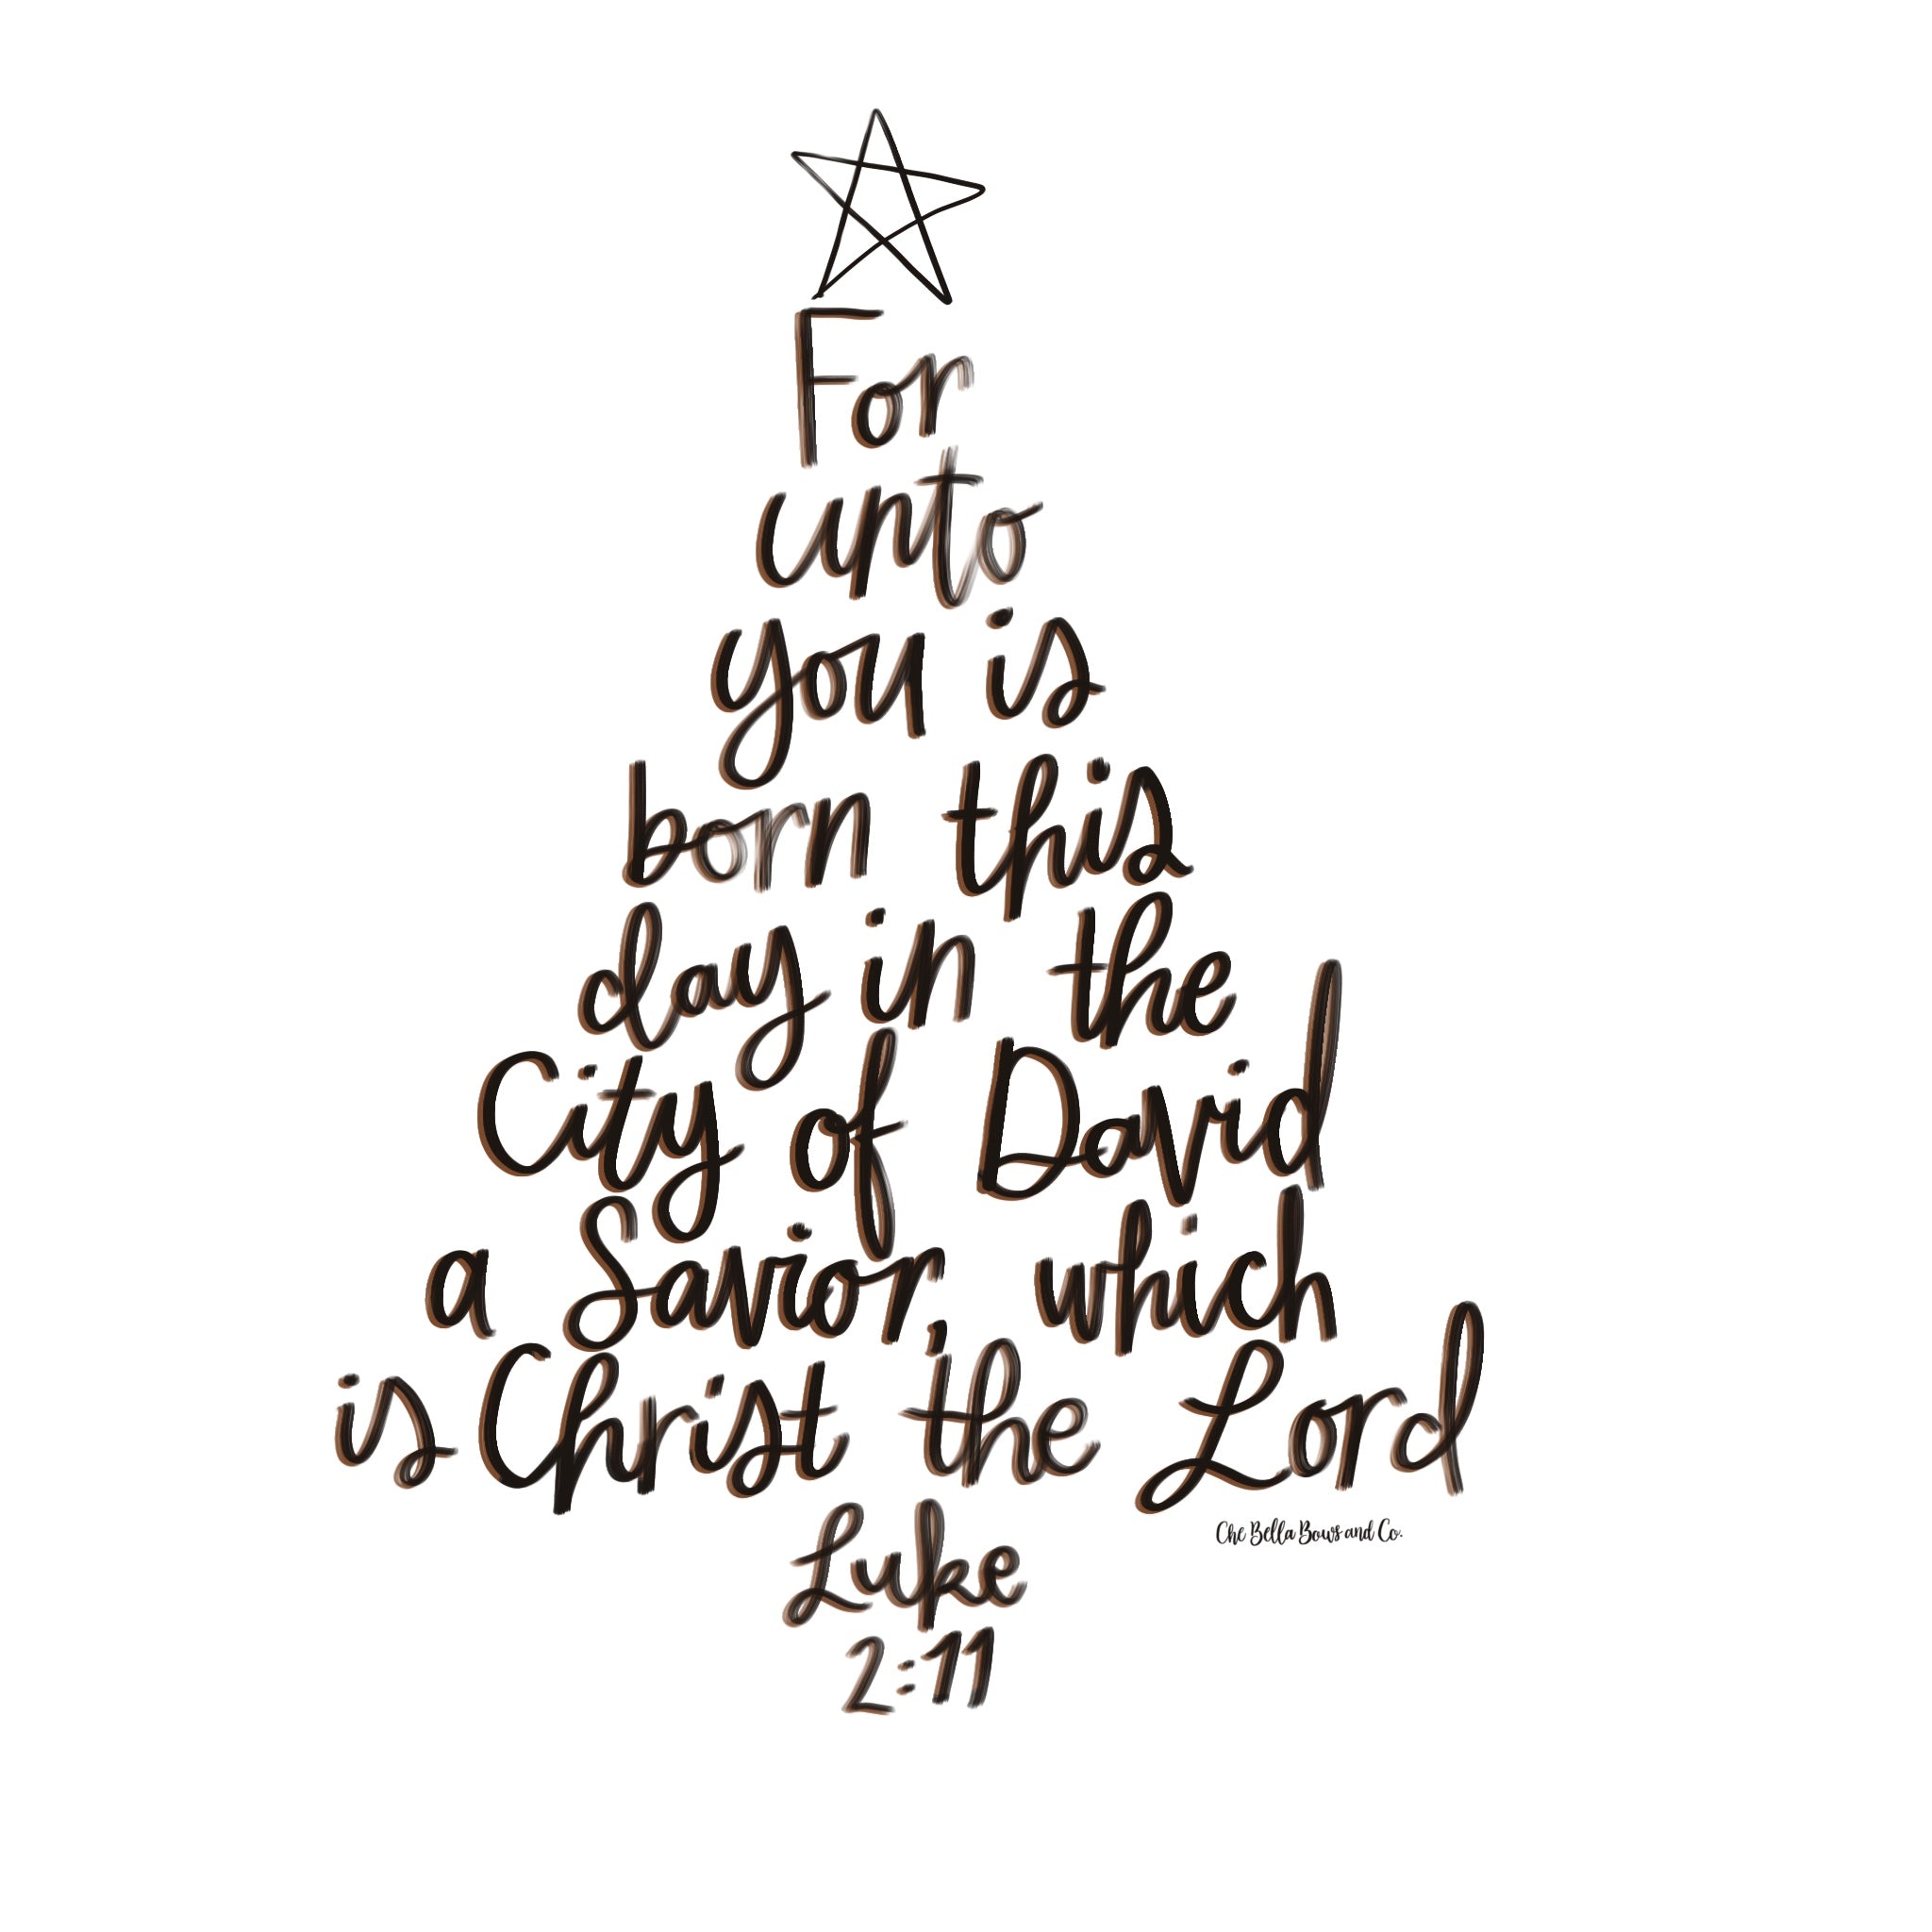 For
unto
you is
born this
day in the
City of David
a Savior, which
is Christ the Lord
Che Bella Bows and Co.
Luke
2:11